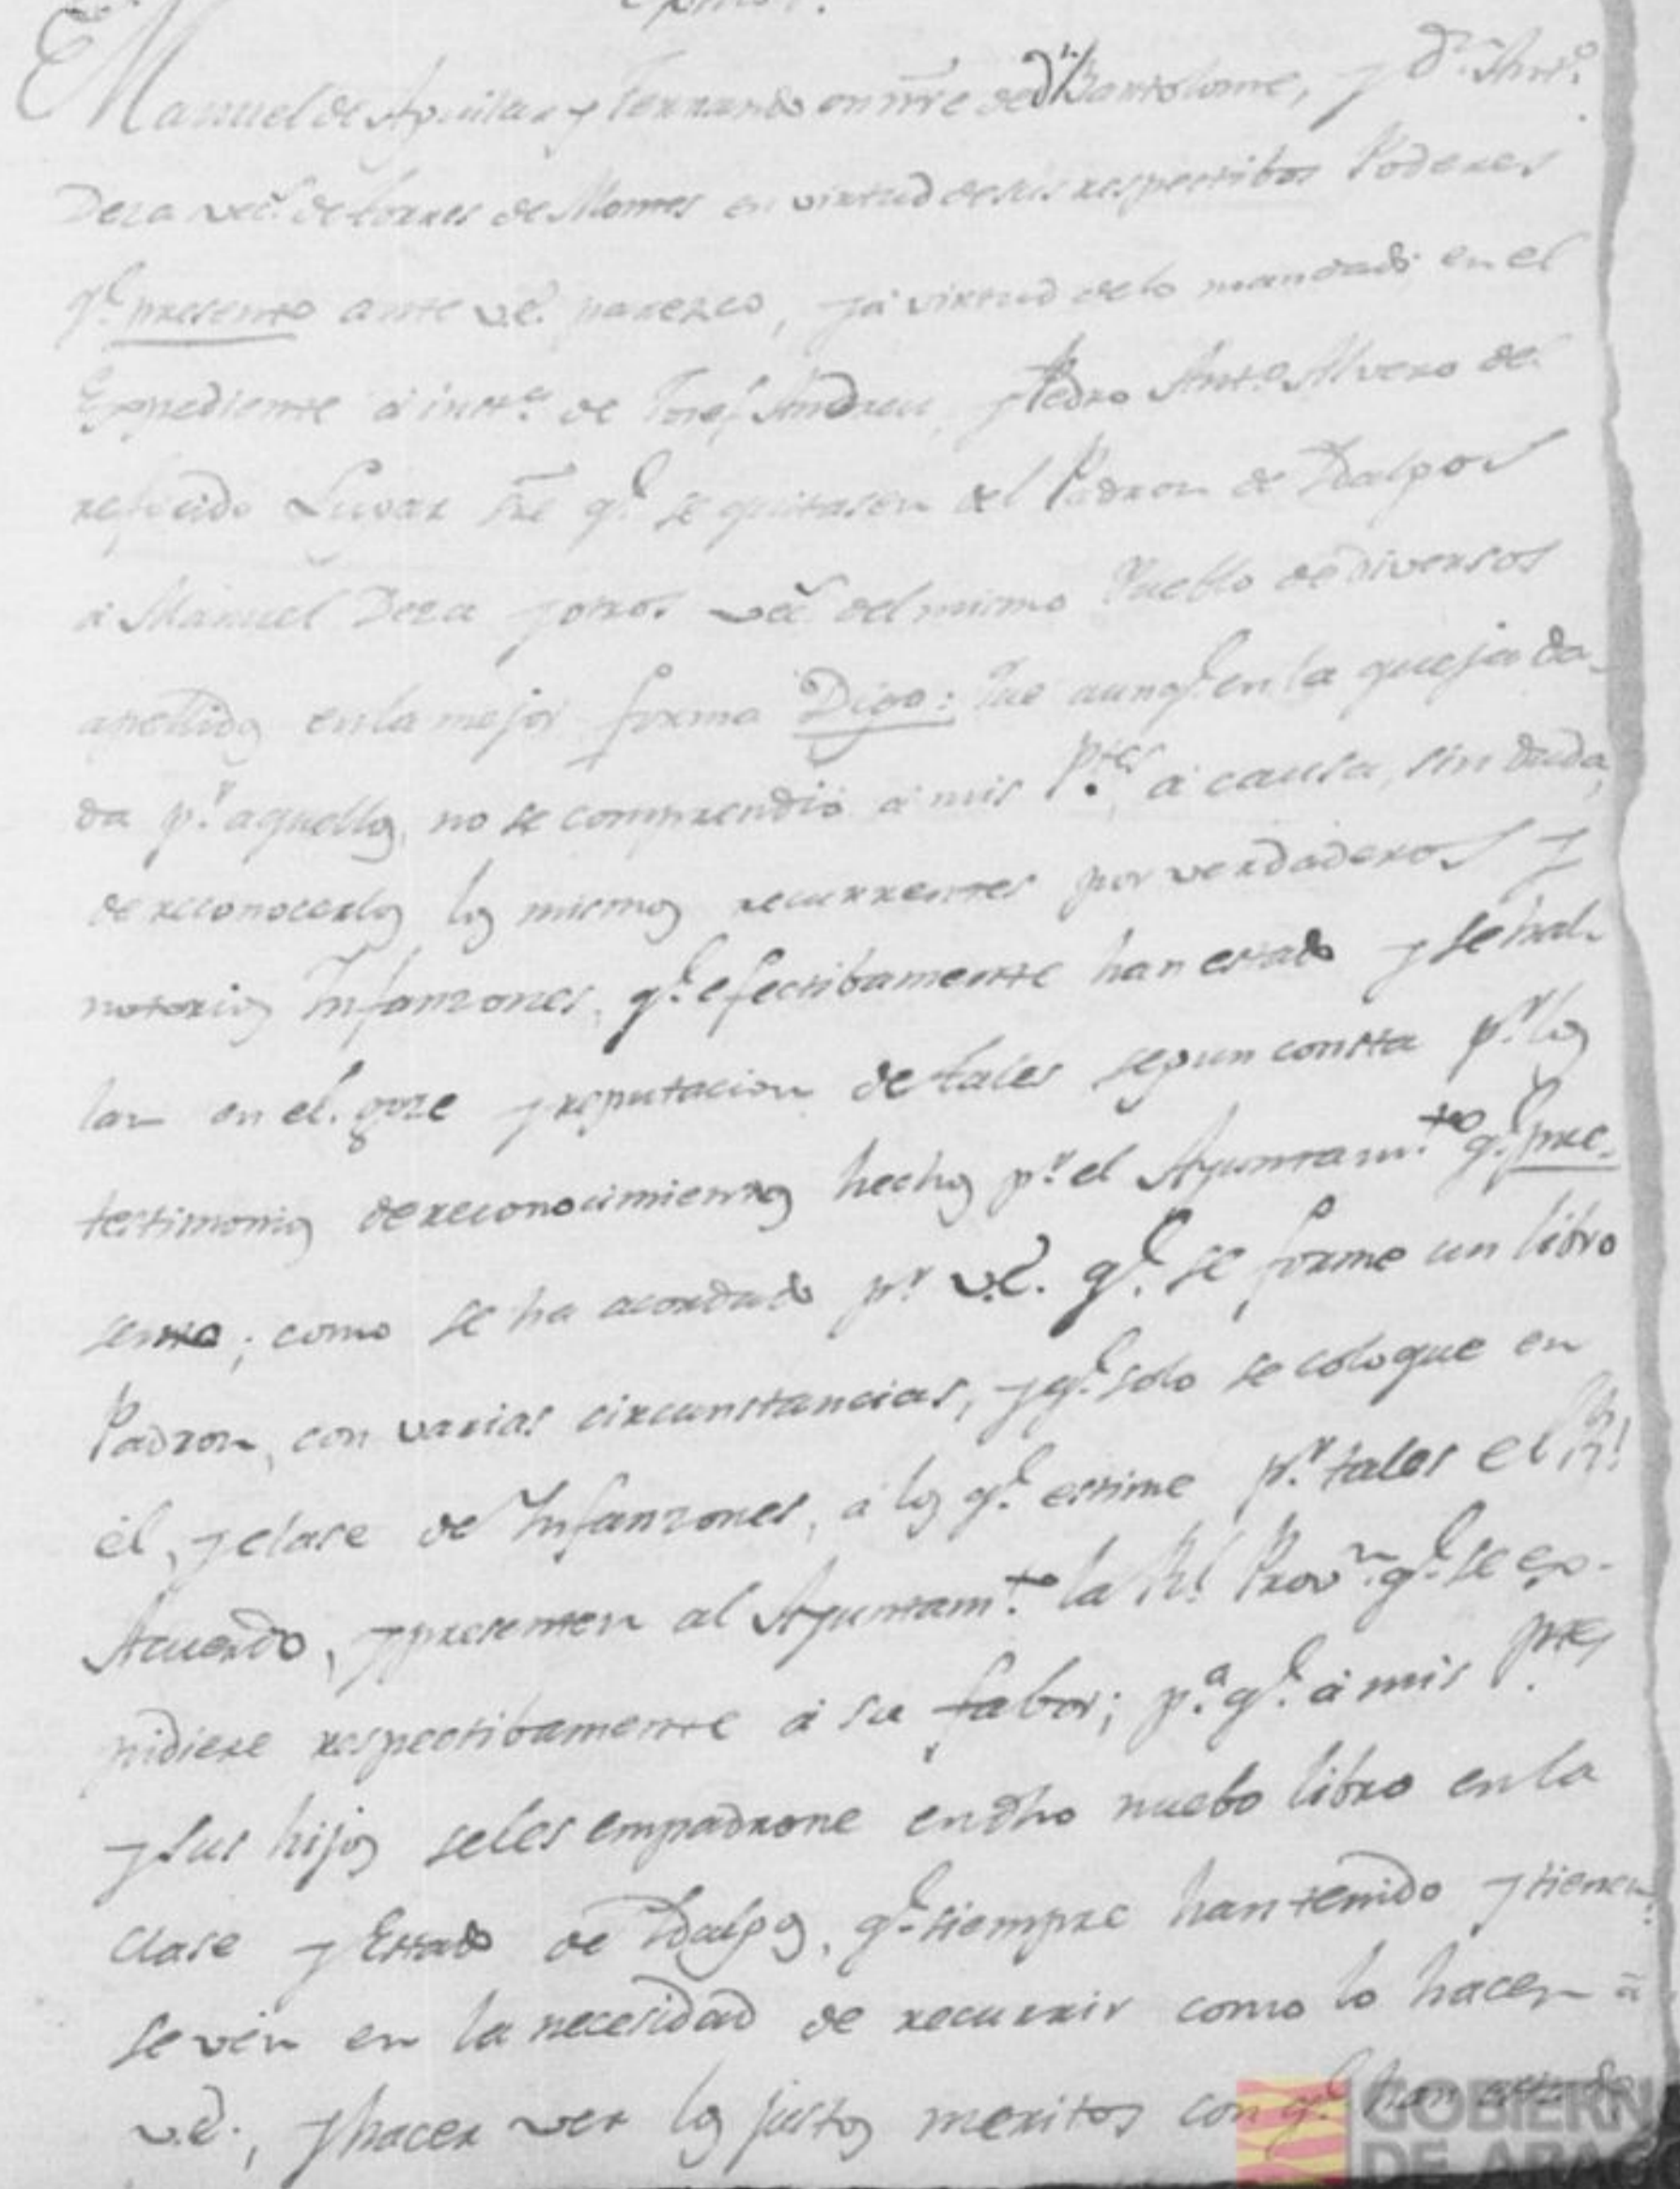 Exmo. Sr.
Manuel de Aguilar y Ferrando en nre de Dn. Bartolome, y Dn. Anto.
Deza vec.s de Torres de Montes en virtud de sus respectibos Poderes
q.e presento ante V.E. parezco, y á virtud de lo mandado en el
Expediente á inst.a de Josef Andreu, y Pedro Anto. Alvero del
referido Lugar sre q.e se quitasen del Padron de Idalgos
á Manuel Deza y otros vec.s del mismo Pueblo de diversos
apellidos en la mejor forma Digo: Que aunq.e en la queja da-
da p.r aquellos, no se comprendió á mis P.tes á causa, sin duda,
de reconocerlos los mismos recurrentes por verdaderos y
notorios Infanzones, q.e efectibamente han estado y se hal-
lan en el goze y reputacion de tales segun consta p.r los
testimonios de reconocimientos hechos p.r el Ayuntam.to q.e pre-
sento; como se ha acordado p.r V.E. q.e se forme un libro
Padron, con varias circunstancias, y q.e solo se coloque en
él, y clase de Infanzones, á los q.e estime p.r tales el R.l
Acuerdo, y presenten al Ayuntam.to la R.l Prov.n q.e se ex-
pidiere respectibamente á su fabor; p.a q.e á mis P.tes
y sus hijos se les empadrone en dho nuebo libro en la
clase y Estado de Idalgos, q.e siempre han tenido y tienen
se ven en la necesidad de recurrir como lo hacen á
V.E., y hacer ver los justos meritos con q.e han estado
GOBIERN
DE ARAG